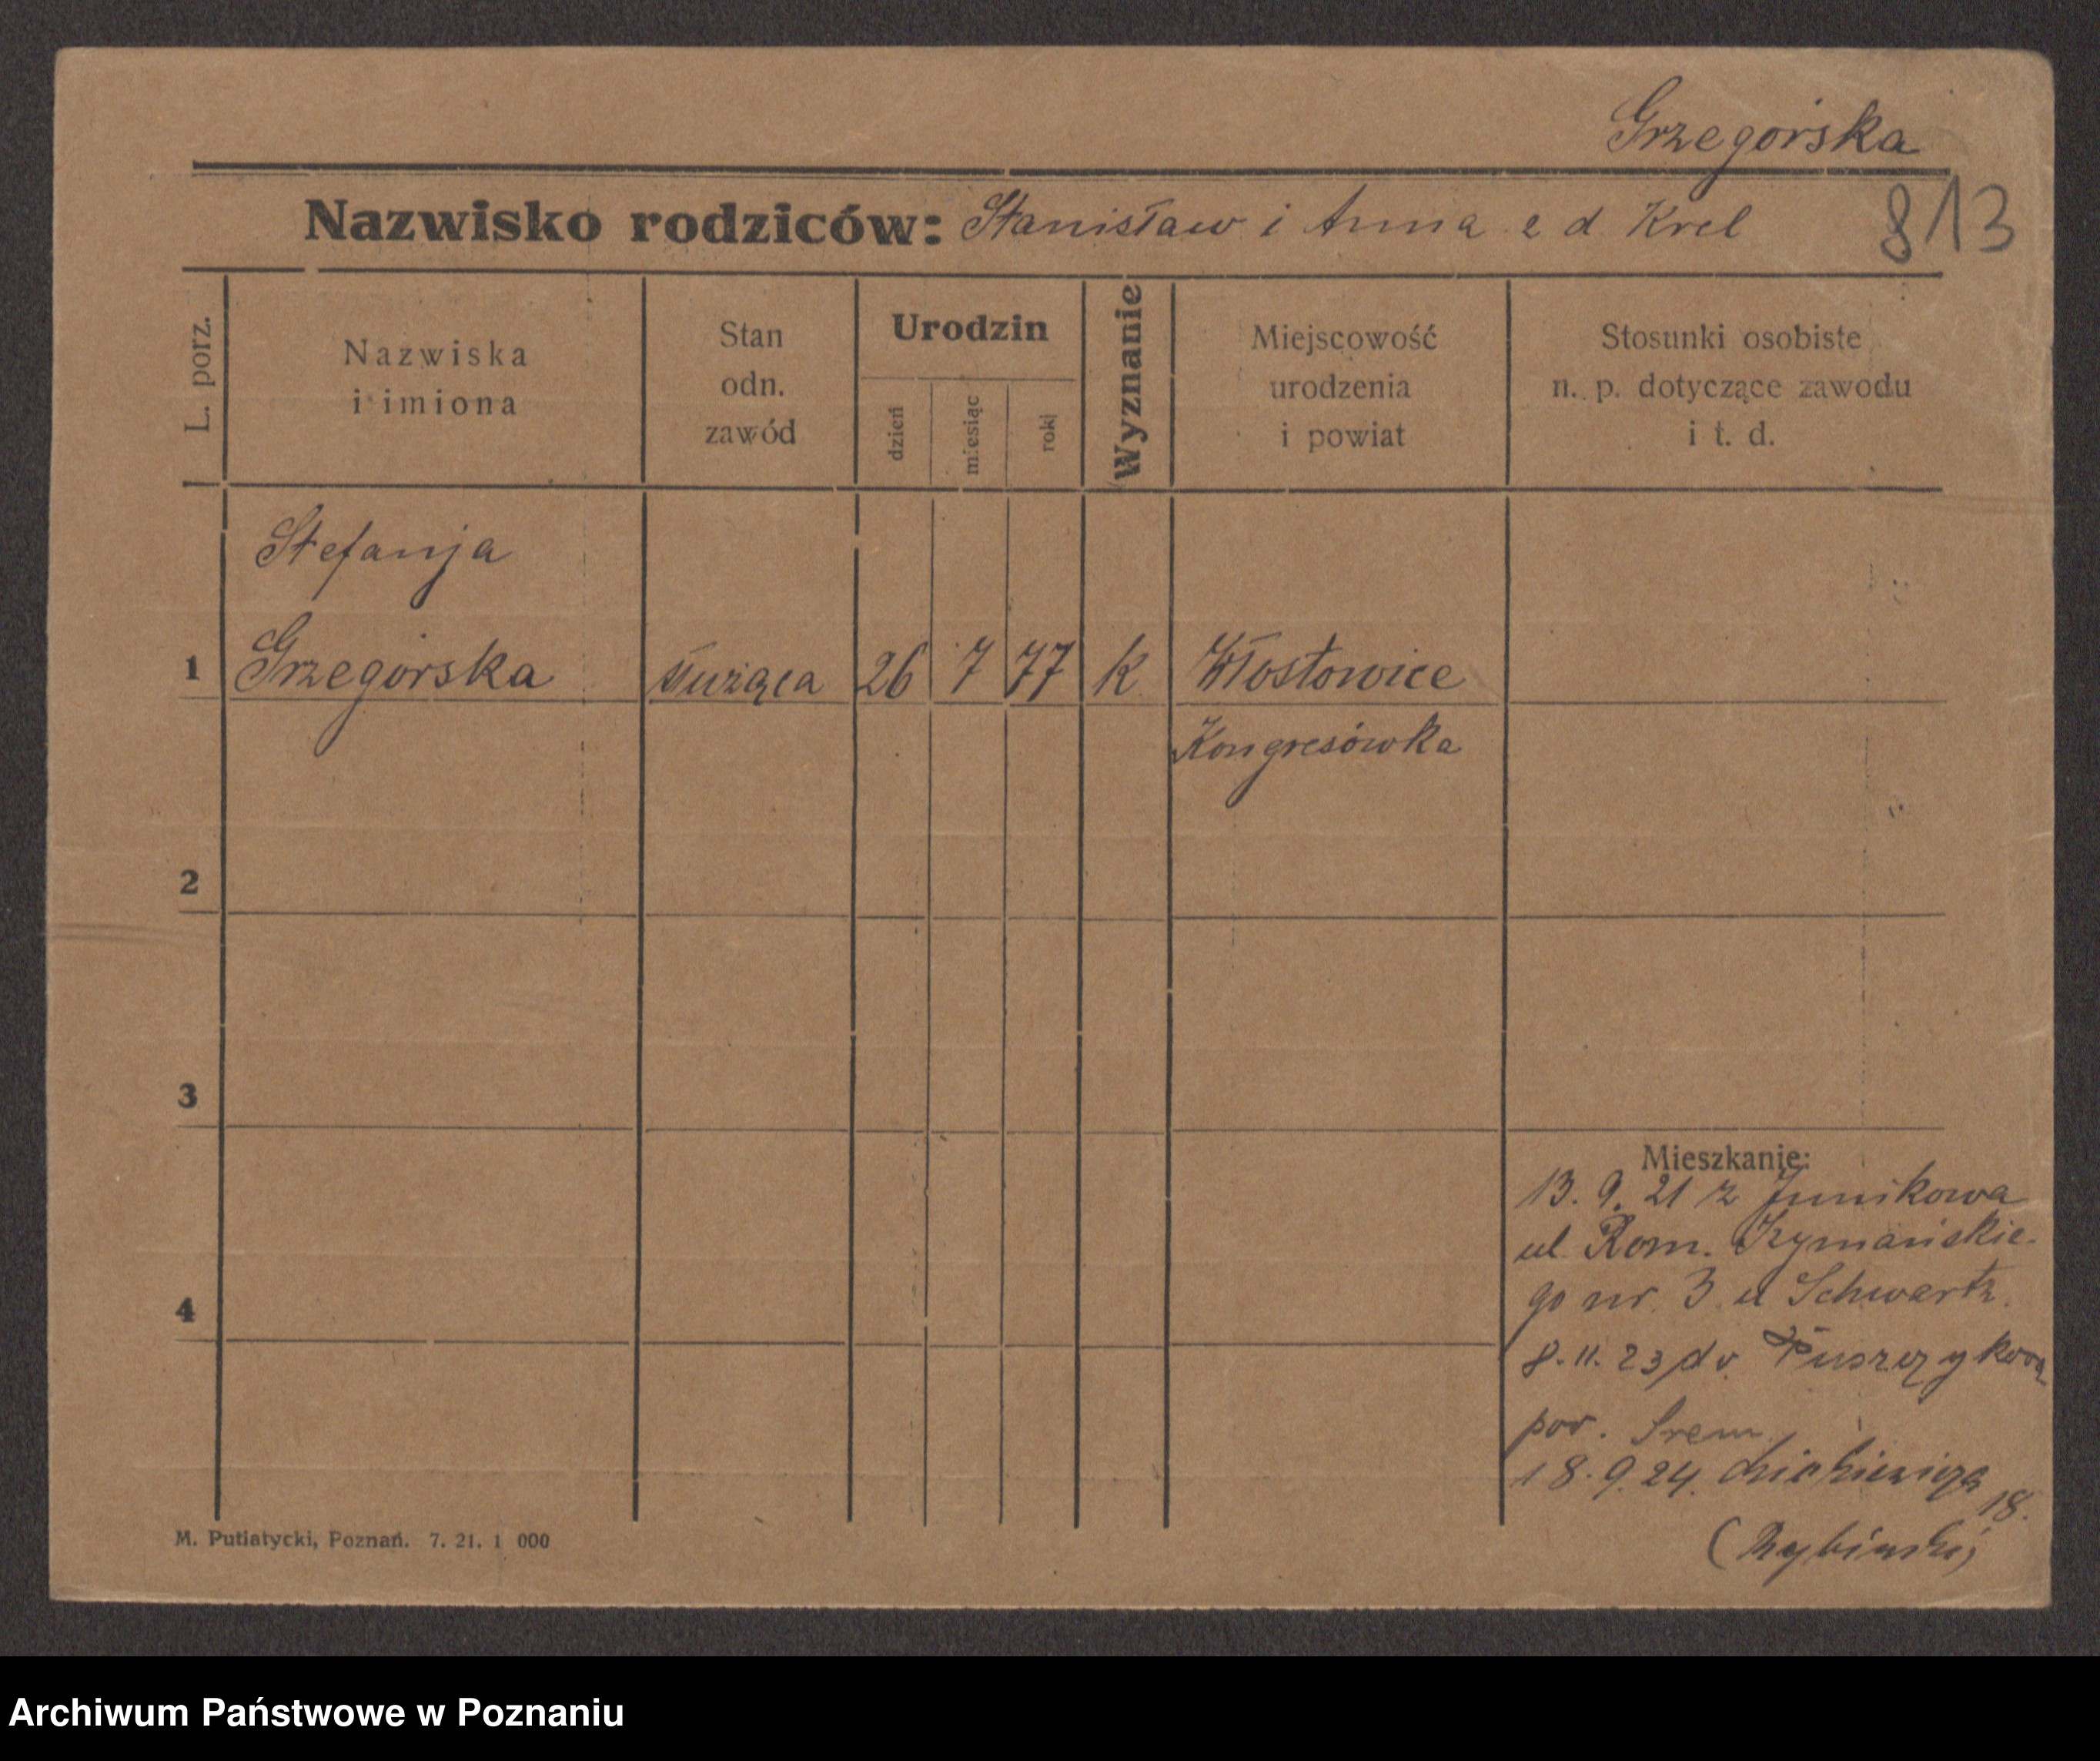 Grzegorska
Nazwisko rodziców: Stanisław i Anna e d Krel
813
L. porz.
Nazwiska
i imiona
Stan
odn.
zawód
Urodzin
dzień
miesiąc
rok
Wyznanie
Miejscowość
urodzenia
i powiat
Stosunki osobiste
n. p. dotyczące zawodu
i t. d.
Stefanja
1 Grzegorska służąca 26 7 77 k Włostowice
Kongresówka
2
3
4
Mieszkanie:
13. 9. 21 z Junikowa
ul. Rom. Szymańskie-
go nr. 3 u Schwartz.
8. 11. 23 do Puszczykowa
pow. Śrem
18. 9. 24. Mickiewicza 18.
(Rybiński)
M. Putiatycki, Poznań. 7. 21. 1 000
Archiwum Państwowe w Poznaniu